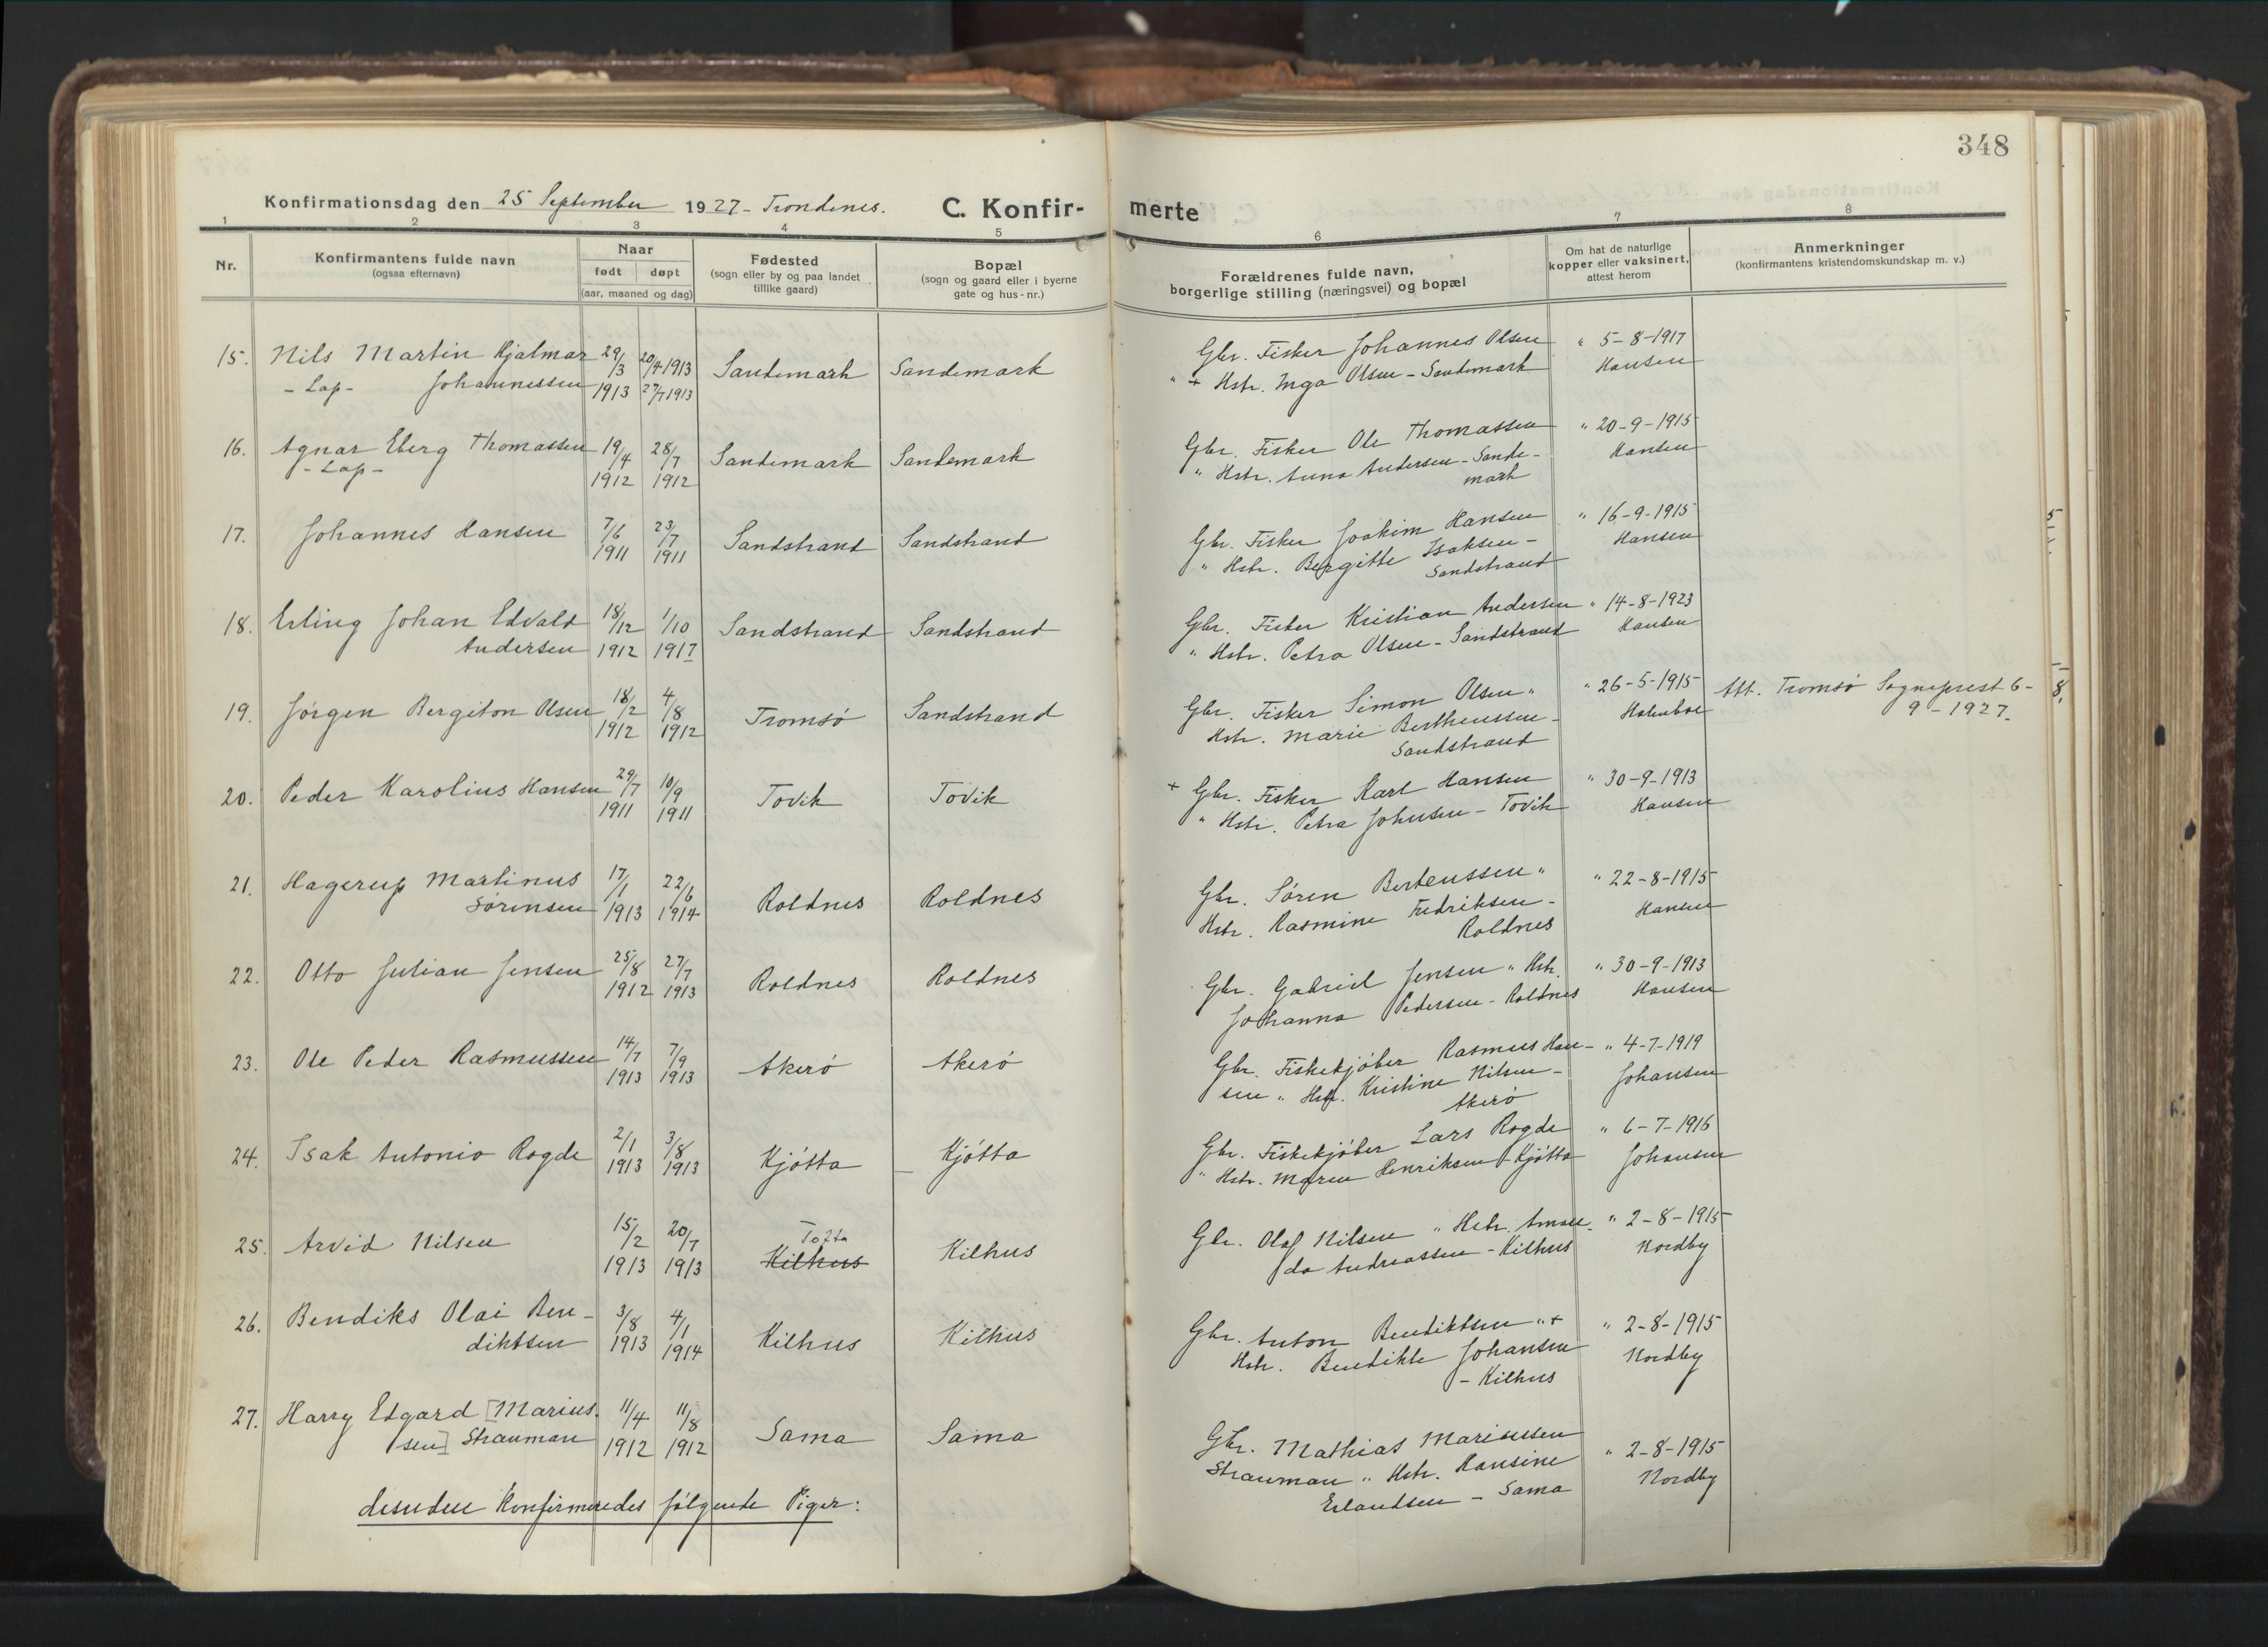 348
Konfirmationsdag den 25 September 1927 - Trondenes. C. Konfirmerte
1 2 3 4 5 6 7 8
Nr.
Konfirmantens fulde navn
(ogsaa efternavn)
Naar
født døpt
(aar, maaned og dag)
Fødested
(sogn eller by og paa landet
tillike gaard)
Bopæl
(sogn og gaard eller i byerne
gate og hus-nr.)
Forældrenes fulde navn,
borgerlige stilling (næringsvei) og bopæl
Om hat de naturlige
kopper eller vaksinert,
attest herom
Anmerkninger
(konfirmantens kristendomskundskap m. v.)
15. Nils Martin Hjalmar 29/3 20/4 1913 Sandemark Sandemark Gbr. Fisker Johannes Olsen " 5-8-1917
- Lap- Johannessen 1913 27/7 1913 " + Hstr. Inga Olsen - Sandemark Hansen
16. Agnar Eberg Thomassen 19/4 28/7 Sandemark Sandemark Gbr. Fisker Ole Thomassen " 20-9-1915
- Lap - 1912 1912 " Hstr. Anna Andersen - Sande- Hansen
mark
17. Johannes Hansen 7/6 23/7 Sandstrand Sandstrand Gbr. Fisker Joakim Hansen " 16-9-1915
1911 1911 " Hstr. Bergitte Isaksen - Hansen
Sandstrand
18. Erling Johan Edvald 18/12 1/10 Sandstrand Sandstrand Gbr. Fisker Kristian Andersen " 14-8-1923
Andersen 1912 1917 " Hstr. Petra Olsen - Sandstrand Hansen
19. Jørgen Bergiton Olsen 18/2 4/8 Tromsø Sandstrand Gbr. Fisker Simon Olsen " " 26-5-1915 Att. Tromsø Sogneprest 6-
1912 1912 Hstr. Marie Berthenssen - Holmboe 9-1927.
Sandstrand
20. Peder Karolius Hansen 29/7 10/9 Tovik Tovik + Gbr. Fisker Karl Hansen " 30-9-1913
1911 1911 " Hstr. Petra Johnsen - Tovik Hansen
21. Hagerup Martinus 17/1 22/6 Roldnes Roldnes Gbr. Søren Bertenssen " " 22-8-1915
Sørensen 1913 1914 Hstr. Rasmine Fredriksen - Hansen
Roldnes
22. Otto Julian Jensen 25/8 27/7 Roldnes Roldnes Gbr. Gabriel Jensen " Hstr. " 30-9-1913
1912 1913 Johanna Pedersen - Roldnes Hansen
23. Ole Peder Rasmussen 14/7 7/9 Akerø Akerø Gbr. Fiskekjøber Rasmus Han- " 4-7-1919
1913 1913 sen " Hstr. Kristine Nilsen - Johansen
Akerø
24. Isak Antonio Rogde 2/1 3/8 Kjøtta Kjøtta Gbr. Fiskekjøber Lars Rogde " 6-7-1916
1913 1913 " Hstr. Maren Henriksen - Kjøtta Johansen
25. Arvid Nilsen 15/2 20/7 Tofta Kilhus Gbr. Olaf Nilsen " Hstr. Aman- " 2-8-1915
1913 1913 Kilhus da Andreassen - Kilhus Nordby
26. Bendiks Olai Ben- 3/8 4/1 Kilhus Kilhus Gbr. Anton Bendiktsen " + " 2-8-1915
diktsen 1913 1914 Hstr. Bendikte Johansen Nordby
- Kilhus
27. Harry Edgard [Marius- 11/4 11/8 Sama Sama Gbr. Mathias Mariussen " 2-8-1915
sen] Strauman 1912 1912 Strauman " Hstr. Hansine Nordby
Erlandsen - Sama
desuden Konfirmeredes følgende Piger: